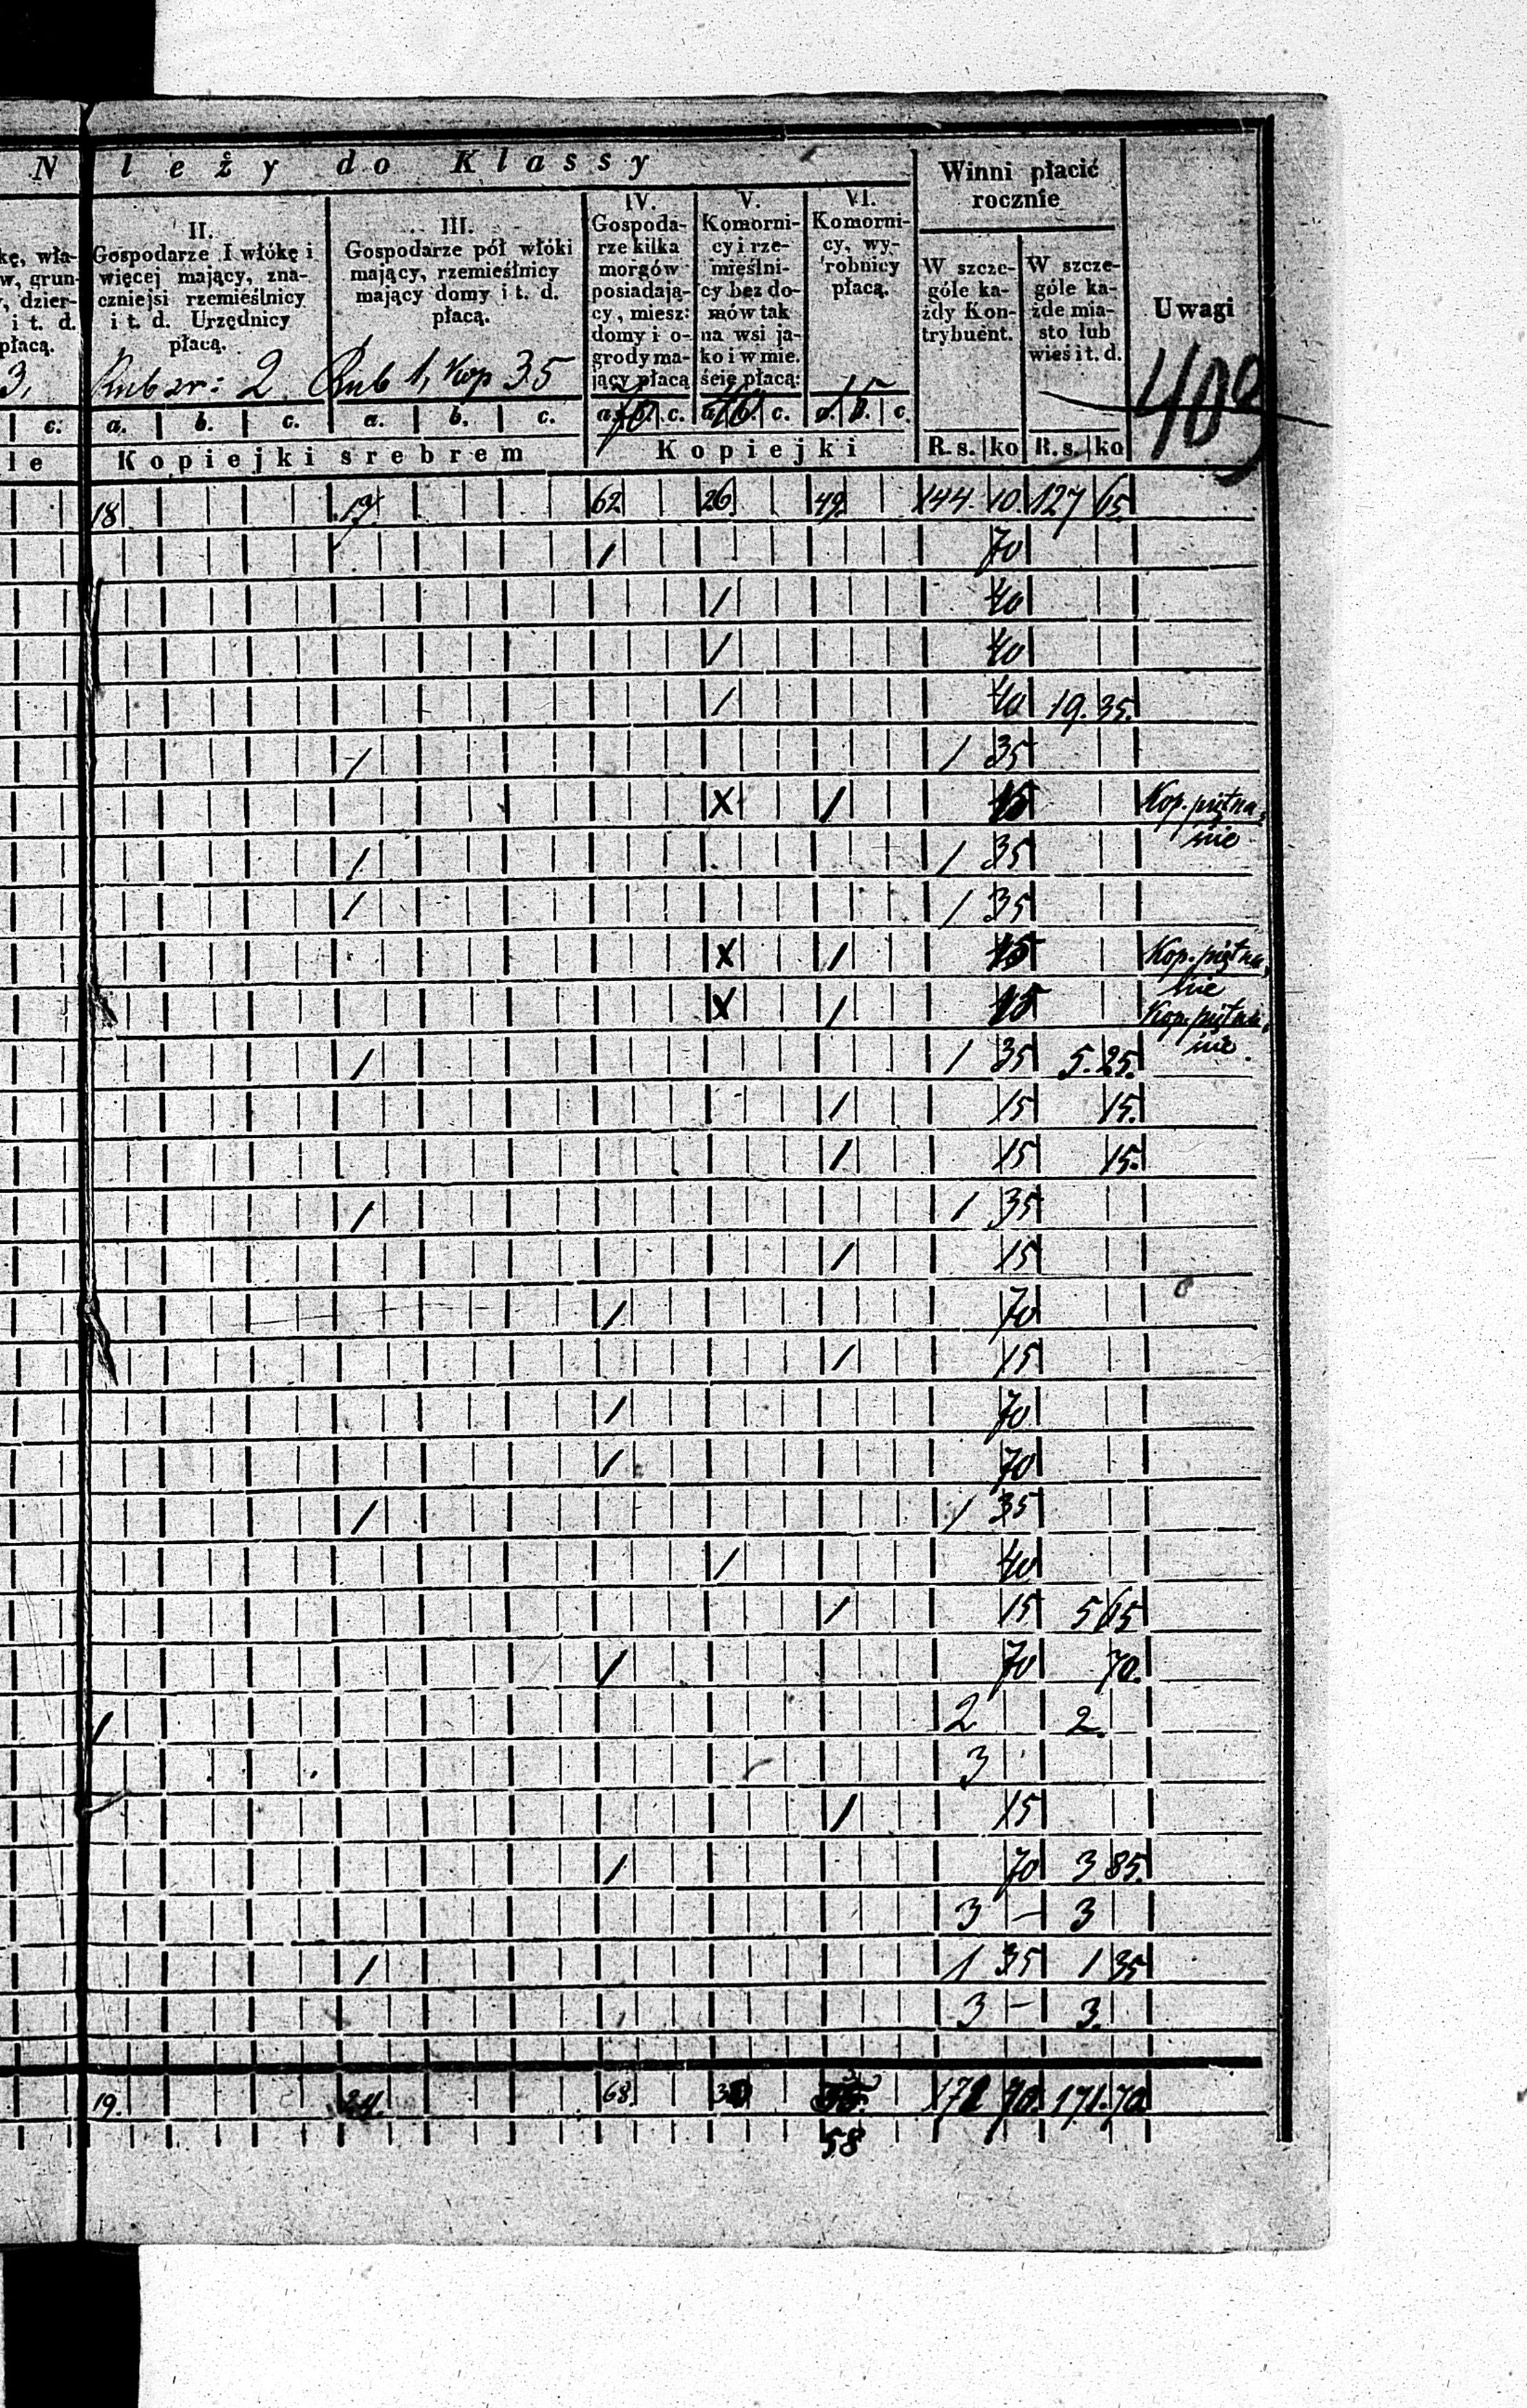 N leży do Klassy
Winni płacić
rocznie
Uwagi
409
kę, wła-
w, grun-
, dzier-
i t. d.
płacą.
3,
II.
Gospodarze I włókę i
więcej mający, zna-
czniejsi rzemieślnicy
i t. d. Urzędnicy
płacą.
Rub sr: 2
III.
Gospodarze pół włóki
mający, rzemieślnicy
mający domy i t. d.
płacą.
Rub 1, kop 35
IV.
Gospoda-
rze kilka
morgów
posiadają-
cy, miesz:
domy i o-
grody ma-
jący płacą
70
V.
Komorni-
cy i rze-
mięślni-
cy bez do-
mów tak
na wsi ja-
ko i w mie.
ście płacą:
40
VI.
Komorni-
cy, wy-
robnicy
płacą.
15
W szcze-
góle ka-
żdy Kon-
trybuent.
W szcze-
góle ka-
żde mia-
sto lub
wieś i t. d.
c. a. b. c. a. b. c. a. b. c. a. b. c. a. b. c.
le Kopiejki srebrem Kopiejki R. s. ko R. s. ko
18 17 62 26 49 144 10 127 65
1 70
1 40
1 40
1 40 19. 35.
1 1 35
X 1 15 Kop. piętna,
nie
1 1 35
1 1 35
X 1 15 Kop. piętna,
nie
X 1 15 Kop. piętna,
nie.
1 1 35 5. 25.
1 15 15.
1 15 15.
1 1 35
1 15
1 70
1 15
1 70
1 70
1 1 35
1 40
1 15 5 65
1 70 70.
1 2 2.
3
1 15
1 70 3 85.
3 – 3
1 1 35 1 35
3 – 3.
19. 24. 68. 30 171 70. 171. 70
58